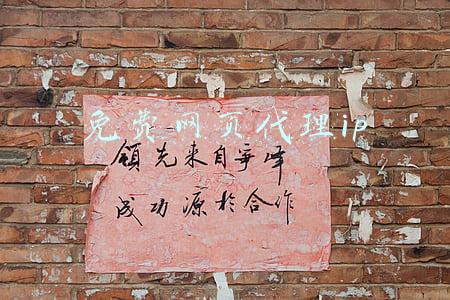 免费网页代理ip
领先来自争峰
成功源於合作